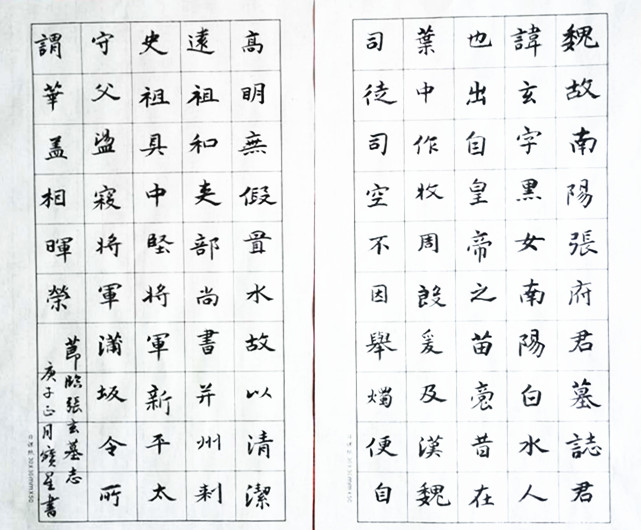 魏故南陽張府君墓誌君
諱玄字黑女南陽白水人
也出自皇帝之苗裔昔在
葉中作牧周殷爰及漢魏
司徒司空不因舉燭便自
高明無假置水故以清潔
遠祖和吏部尚書并州刺
史祖具中堅將軍新平太
守父盪寇將軍蒲坂令所
謂華盖相暉榮
節臨張玄墓志
庚子正月寶星書